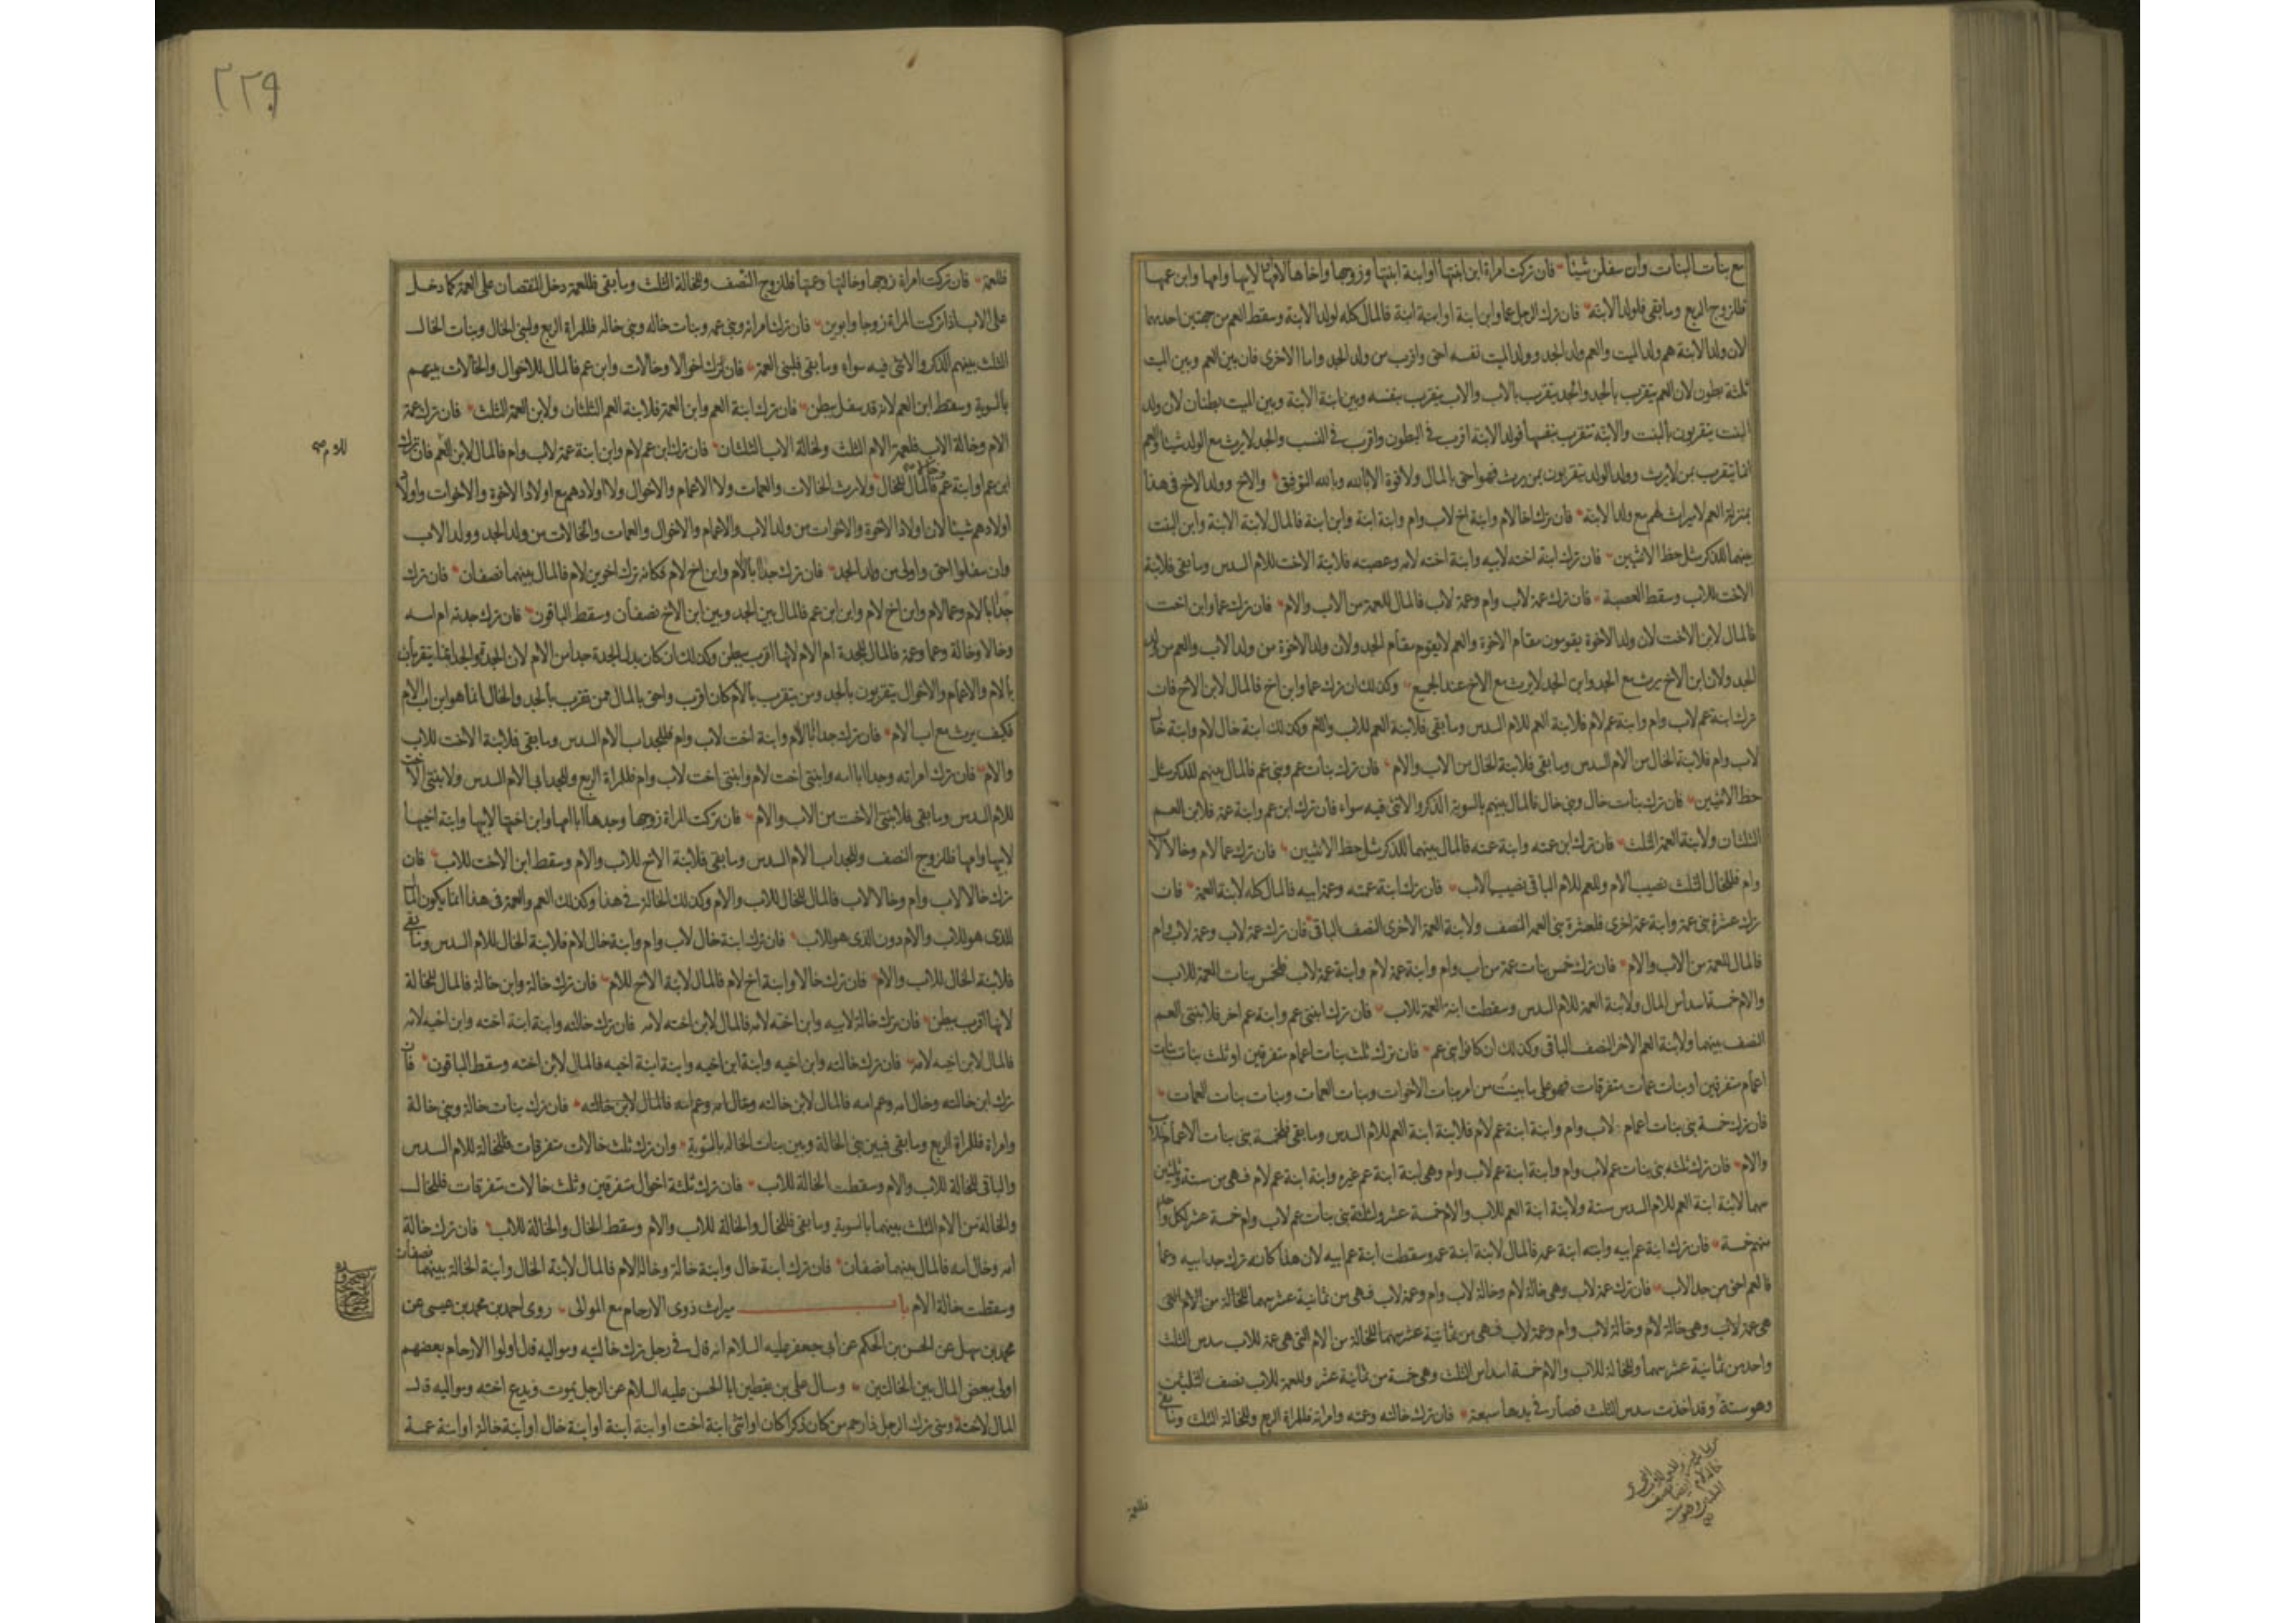 مع بنات البنات وان سفلن شيئا فان تركت امراة ابن ابنتها او ابنة ابنتها وزوجها واخاها لامها لابيها وامها وابن عمها
فللزوج الربع وما بقى فلولد الابنة فان ترك الرجل عما وابن ابنة او ابنة ابنة فالمال كله لولد الابنة وسقط العم من جهتين احديهما
لان ولد الابنة هم ولد الميت والعم ولد الجد وولد الميت نفسه احق واقرب من ولد الجد واما الاخرى فان بين العم وبين الميت
ثلثة بطون لان العم يتقرب بالجد والجد يتقرب بالاب والاب يتقرب بنفسه وبين ابنة الابنة وبين الميت بطنان لان ولد
البنت يتقربون بالبنت والابنة تتقرب بنفسها فولد الابنة اقرب فى البطون واقرب فى النسب والجد لا يرث مع الولد شيئا والعم
انما يتقرب بمن لا يرث وولد الولد يتقربون بمن يرث فهو احق بالمال ولا قوة الا بالله وبالله التوفيق والاخ وولد الاخ فى هذا
بمنزلة العم لا ميراث لهم مع ولد الابنة فان ترك اخا لام وابنة اخ لاب وام وابنة ابنة وابن ابنة فالمال لابنة الابنة وابن البنت
بينهما للذكر مثل حظ الانثيين فان ترك ابنة اخته لابيه وابنة اخته لامه وعصبته فلابنة الاخت للام السدس وما بقى فلابنة
الاخت للاب وسقط العصبة فان ترك عمة لاب وام وعمة لاب فالمال للعمة من الاب والام فان ترك عما وابن اخت
فالمال لابن الاخت لان ولد الاخوة يقومون مقام الاخوة والعم لا يقوم مقام الجد ولان ولد الاخوة من ولد الاب والعم من ولد
الجد ولان ابن الاخ يرث مع الجد وابن الجد لا يرث مع الاخ عند الجميع وكذلك ان ترك عما وابن اخ فالمال لابن الاخ فان
ترك ابنة عم لاب وام وابنة عم لام فلابنة العم للام السدس وما بقى فلابنة العم للاب والام وكذلك ابنة خال لام وابنة خال
لاب وام فلابنة الخال من الام السدس وما بقى فلابنة الخال من الاب والام فان ترك بنات عم وبنى عم فالمال بينهم للذكر مثل
حظ الانثيين فان ترك بنات خال وبنى خال فالمال بينهم بالسوية الذكر والانثى فيه سواء فان ترك ابن عم وابنة عمة فلابن العم
الثلثان ولابنة العمة الثلث فان ترك ابن عمته وابنة عمته فالمال بينهما للذكر مثل حظ الانثيين فان ترك عما لام وخالا لاب
وام فللخال الثلث نصيب الام وللعم للام الباقى نصيب الاب فان ترك ابنة عمته وعمة ابيه فالمال كله لابنة العمة فان
ترك عشرة بنى عمة وابنة عمة اخرى فلعشرة بنى العمة النصف ولابنة العمة الاخرى النصف الباقى فان ترك عمة لاب وعمة لاب وام
فالمال للعمة من الاب والام فان ترك خمس بنات عمة من اب وام وابنة عمة لام وابنة عمة لاب فلخمس بنات العمة للاب
والام خمسة اسداس المال ولابنة العمة للام السدس وسقطت ابنة العمة للاب فان ترك ابنتى عم وابنة عم اخر فلابنتى العم
النصف بينهما ولابنة العم الاخر النصف الباقى وكذلك ان كانوا بنى عم فان ترك ثلث بنات اعمام متفرقين او ثلث بنات بنات
اعمام متفرقين او بنات عمات متفرقات فهو على ما بينت من امر بنات الاخوات وبنات العمات وبنات بنات العمات
فان ترك خمسة بنى بنات اعمام لاب وام وابنة ابنة عم لام فلابنة ابنة العم للام السدس وما بقى فلخمسة بنى بنات الاعمام للاب
والام فان ترك ثلثة بنى بنات عم لاب وام وابنة ابنة عم لاب وام وهى ابنة ابنة عم غيره وابنة ابنة عم لام فهى من ستة وثلثين
سهما لابنة ابنة العم للام السدس ستة ولابنة ابنة العم للاب والام خمسة عشر ولثلثة بنى بنات عم لاب وام خمسة عشر لكل واحد
منهم خمسة فان ترك ابنة عم ابيه وابنة ابنة عمه فالمال لابنة ابنة عمه وسقطت ابنة عم ابيه لان هذا كانه ترك جد ابيه وعما
فالعم احق من جد الاب فان ترك عمة لاب وهى خالة لام وخالة لاب وام وعمة لاب فهى من ثمانية عشر سهما للخالة من الام التى
هى عمة لاب وهى خالة لام وخالة لاب وام وعمة لاب فهى من ثمانية عشر سهما للخالة من الام التى هى عمة للاب سدس الثلث
واحد من ثمانية عشر سهما وللخالة للاب والام خمسة اسداس الثلث وهى خمسة من ثمانية عشر وللعمة للاب نصف الثلثين
وهو ستة وقد اخذت سدس الثلث فصار فى يدها سبعة فان ترك خالته وعمته وامراة فللمراة الربع وللخالة الثلث وما بقى
فللعمة
٢٢٩
فللعمة فان تركت امراة زوجها وخالتها وعمتها فللزوج النصف وللخالة الثلث وما بقى فللعمة دخل النقصان على العمة كما دخل
على الاب اذا تركت المراة زوجا وابوين فان ترك امراته وبنى عمه وبنات خاله وبنى خاله فللمراة الربع ولبنى الخال وبنات الخال
الثلث بينهم الذكر والانثى فيه سواء وما بقى فلبنى العمة فان ترك اخوالا وخالات وابن عم فالمال للاخوال والخالات بينهم
بالسوية وسقط ابن العم لانه قد سفل ببطن فان ترك ابنة العم وابن العمة فلابنة العم الثلثان ولابن العمة الثلث فان ترك عمة
الام وخالة الاب فلعمة الام الثلث ولخالة الاب الثلثان فان ترك ابن عم لام وابن ابنة عمة لاب وام فالمال لابن العم فان ترك
للام صح
ابن عم او ابنة عم وخالا فالمال للخال ولا يرث الخالات والعمات ولا الاعمام والاخوال ولا اولادهم مع اولاد الاخوة والاخوات واولاد
اولادهم شيئا لان اولاد الاخوة والاخوات من ولد الاب والاعمام والاخوال والعمات والخالات من ولد الجد وولد الاب
وان سفلوا احق واولى من ولد الجد فان ترك جدا ابا الام وابن اخ لام فكانه ترك اخوين لام فالمال بينهما نصفان فان ترك
جدا ابا لام وعما لام وابن اخ لام وابن ابن عم فالمال بين الجد وبين ابن الاخ نصفان وسقط الباقون فان ترك جدته ام امه
وخالا وخالة وعما وعمة فالمال للجدة ام الام لانها اقرب ببطن وكذلك ان كان بدل الجدة جدا من الام لان الجدة والجد انما يتقربان
بالام والاعمام والاخوال يتقربون بالجد ومن يتقرب بالام كان اقرب واحق بالمال ممن تقرب بالجد والخال انما هو ابن اب الام
فكيف يرث مع اب الام فان ترك جدا ابا الام وابنة اخت لاب وام فللجد اب الام السدس وما بقى فلابنة الاخت للاب
والام فان ترك امراته وجدا ابا امه وابنتى اخت لام وابنتى اخت لاب وام فللمراة الربع وللجد ابى الام السدس ولابنتى الاخت
للام السدس وما بقى فلابنتى الاخت من الاب والام فان تركت المراة زوجها وجدها ابا امها وابن اختها لابيها وابنة اخيها
لابيها وامها فللزوج النصف وللجد اب الام السدس وما بقى فلابنة الاخ للاب والام وسقط ابن الاخت للاب فان
ترك خالا لاب وام وخالا لاب فالمال للخال للاب والام وكذلك الخالة فى هذا وكذلك العم والعمة فى هذا انما يكون المال
للذى هو للاب والام دون الذى هو للاب فان ترك ابنة خال لاب وام وابنة خال لام فلابنة الخال للام السدس وما بقى
فلابنة الخال للاب والام فان ترك خالا وابنة اخ لام فالمال لابنة الاخ للام فان ترك خالة وابن خالة فالمال للخالة
لانها اقرب ببطن فان ترك خالة لابيه وابن اخته لامه فالمال لابن اخته لامه فان ترك خالته وابنة ابنة اخته وابن اخيه لامه
فالمال لابن اخيه لامه فان ترك خالته وابن اخيه وابنة ابن اخيه وابنة ابنة اخيه فالمال لابن اخته وسقط الباقون فان
ترك ابن خالته وخال امه وعم امه فالمال لابن خالته وخال امه وعم امه فالمال لابن خالته فان ترك بنات خالة وبنى خالة
وامراة فللمراة الربع وما بقى فبين بنى الخالة وبين بنات الخالة بالسوية وان ترك ثلث خالات متفرقات فللخالة للام السدس
والباقى للخالة للاب والام وسقطت الخالة للاب فان ترك ثلثة اخوال متفرقين وثلث خالات متفرقات فللخال
والخالة من الام الثلث بينهما بالسوية وما بقى فللخال والخالة للاب والام وسقط الخال والخالة للاب فان ترك خالة
امه وخال امه فالمال بينهما نصفان فان ترك ابنة خال وابنة خالة وخالة الام فالمال لابنة الخال وابنة الخالة بينهما نصفان
وسقطت خالة الام باب ميراث ذوى الارحام مع الموالى روى احمد بن محمد بن عيسى عن
محمد بن سهل عن الحسن بن الحكم عن ابى جعفر عليه السلام انه قال فى رجل ترك خالتيه ومواليه قال اولوا الارحام بعضهم
اولى ببعض المال بين الخالتين وسال على بن يقطين ابا الحسن عليه السلام عن الرجل يموت ويدع اخته ومواليه قال
المال لاخته ومتى ترك الرجل ذا رحم من كان ذكرا كان او انثى ابنة اخت او ابنة ابنة او ابنة خال او ابنة خالة او ابنة عمة